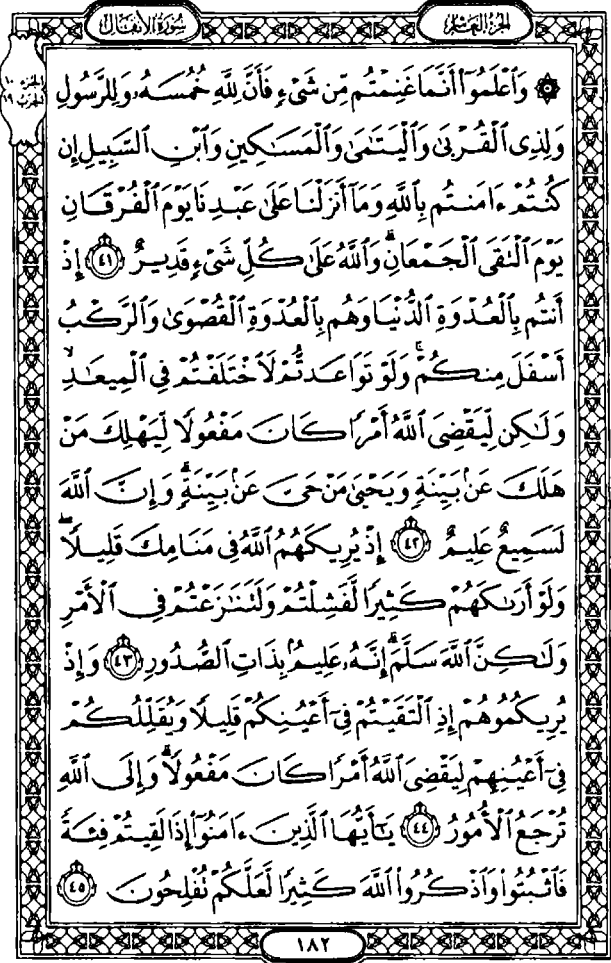 الجزء العاشر
سورة الأنفال
الجزء ١٠
الحزب ١٩
۞ وَٱعْلَمُوٓا۟ أَنَّمَا غَنِمْتُم مِّن شَىْءٍ فَأَنَّ لِلَّهِ خُمُسَهُۥ وَلِلرَّسُولِ
وَلِذِى ٱلْقُرْبَىٰ وَٱلْيَتَـٰمَىٰ وَٱلْمَسَـٰكِينِ وَٱبْنِ ٱلسَّبِيلِ إِن
كُنتُمْ ءَامَنتُم بِٱللَّهِ وَمَآ أَنزَلْنَا عَلَىٰ عَبْدِنَا يَوْمَ ٱلْفُرْقَانِ
يَوْمَ ٱلْتَقَى ٱلْجَمْعَانِ ۗ وَٱللَّهُ عَلَىٰ كُلِّ شَىْءٍ قَدِيرٌ ﴿٤١﴾ إِذْ
أَنتُم بِٱلْعُدْوَةِ ٱلدُّنْيَا وَهُم بِٱلْعُدْوَةِ ٱلْقُصْوَىٰ وَٱلرَّكْبُ
أَسْفَلَ مِنكُمْ ۚ وَلَوْ تَوَاعَدتُّمْ لَٱخْتَلَفْتُمْ فِى ٱلْمِيعَـٰدِ ۙ
وَلَـٰكِن لِّيَقْضِىَ ٱللَّهُ أَمْرًا كَانَ مَفْعُولًا لِّيَهْلِكَ مَنْ
هَلَكَ عَنۢ بَيِّنَةٍ وَيَحْيَىٰ مَنْ حَىَّ عَنۢ بَيِّنَةٍ ۗ وَإِنَّ ٱللَّهَ
لَسَمِيعٌ عَلِيمٌ ﴿٤٢﴾ إِذْ يُرِيكَهُمُ ٱللَّهُ فِى مَنَامِكَ قَلِيلًا ۖ
وَلَوْ أَرَىٰكَهُمْ كَثِيرًا لَّفَشِلْتُمْ وَلَتَنَـٰزَعْتُمْ فِى ٱلْأَمْرِ
وَلَـٰكِنَّ ٱللَّهَ سَلَّمَ ۗ إِنَّهُۥ عَلِيمٌۢ بِذَاتِ ٱلصُّدُورِ ﴿٤٣﴾ وَإِذْ
يُرِيكُمُوهُمْ إِذِ ٱلْتَقَيْتُمْ فِىٓ أَعْيُنِكُمْ قَلِيلًا وَيُقَلِّلُكُمْ
فِىٓ أَعْيُنِهِمْ لِيَقْضِىَ ٱللَّهُ أَمْرًا كَانَ مَفْعُولًا ۗ وَإِلَى ٱللَّهِ
تُرْجَعُ ٱلْأُمُورُ ﴿٤٤﴾ يَـٰٓأَيُّهَا ٱلَّذِينَ ءَامَنُوٓا۟ إِذَا لَقِيتُمْ فِئَةً
فَٱثْبُتُوا۟ وَٱذْكُرُوا۟ ٱللَّهَ كَثِيرًا لَّعَلَّكُمْ تُفْلِحُونَ ﴿٤٥﴾
١٨٢